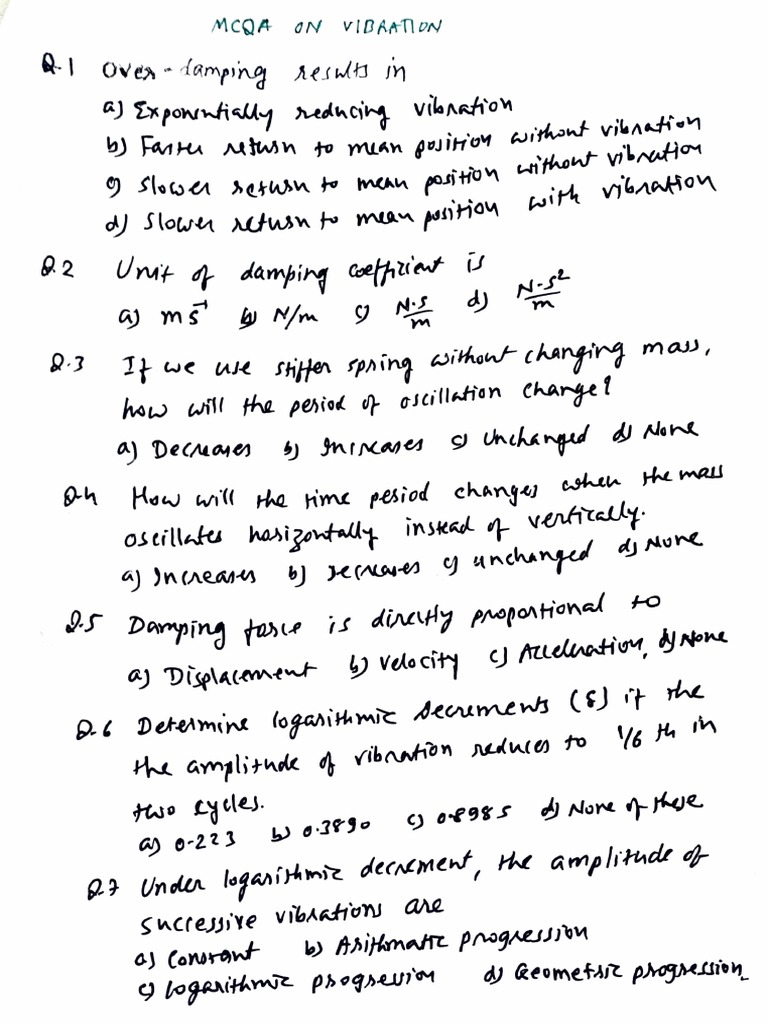 MCQA ON VIBRATION
Q.1 Over-damping results in
a) Exponentially reducing vibration
b) Faster return to mean position without vibration
c) Slower return to mean position without vibration
d) Slower return to mean position with vibration
Q.2 Unit of damping coefficient is
a) ms⁻¹ b) N/m c) N·s/m d) N·s²/m
Q.3 If we use stiffer spring without changing mass,
how will the period of oscillation change?
a) Decreases b) Increases c) Unchanged d) None
Q.4 How will the time period changes when the mass
oscillates horizontally instead of vertically.
a) Increases b) Decreases c) unchanged d) None
Q.5 Damping force is directly proportional to
a) Displacement b) Velocity c) Acceleration, d) None
Q.6 Determine logarithmic decrements (δ) if the
the amplitude of vibration reduces to 1/6 th in
two cycles.
a) 0.223 b) 0.3890 c) 0.8985 d) None of these
Q.7 Under logarithmic decrement, the amplitude of
successive vibrations are
a) Constant b) Arithmatic progression
c) logarithmic progression d) Geometric progression